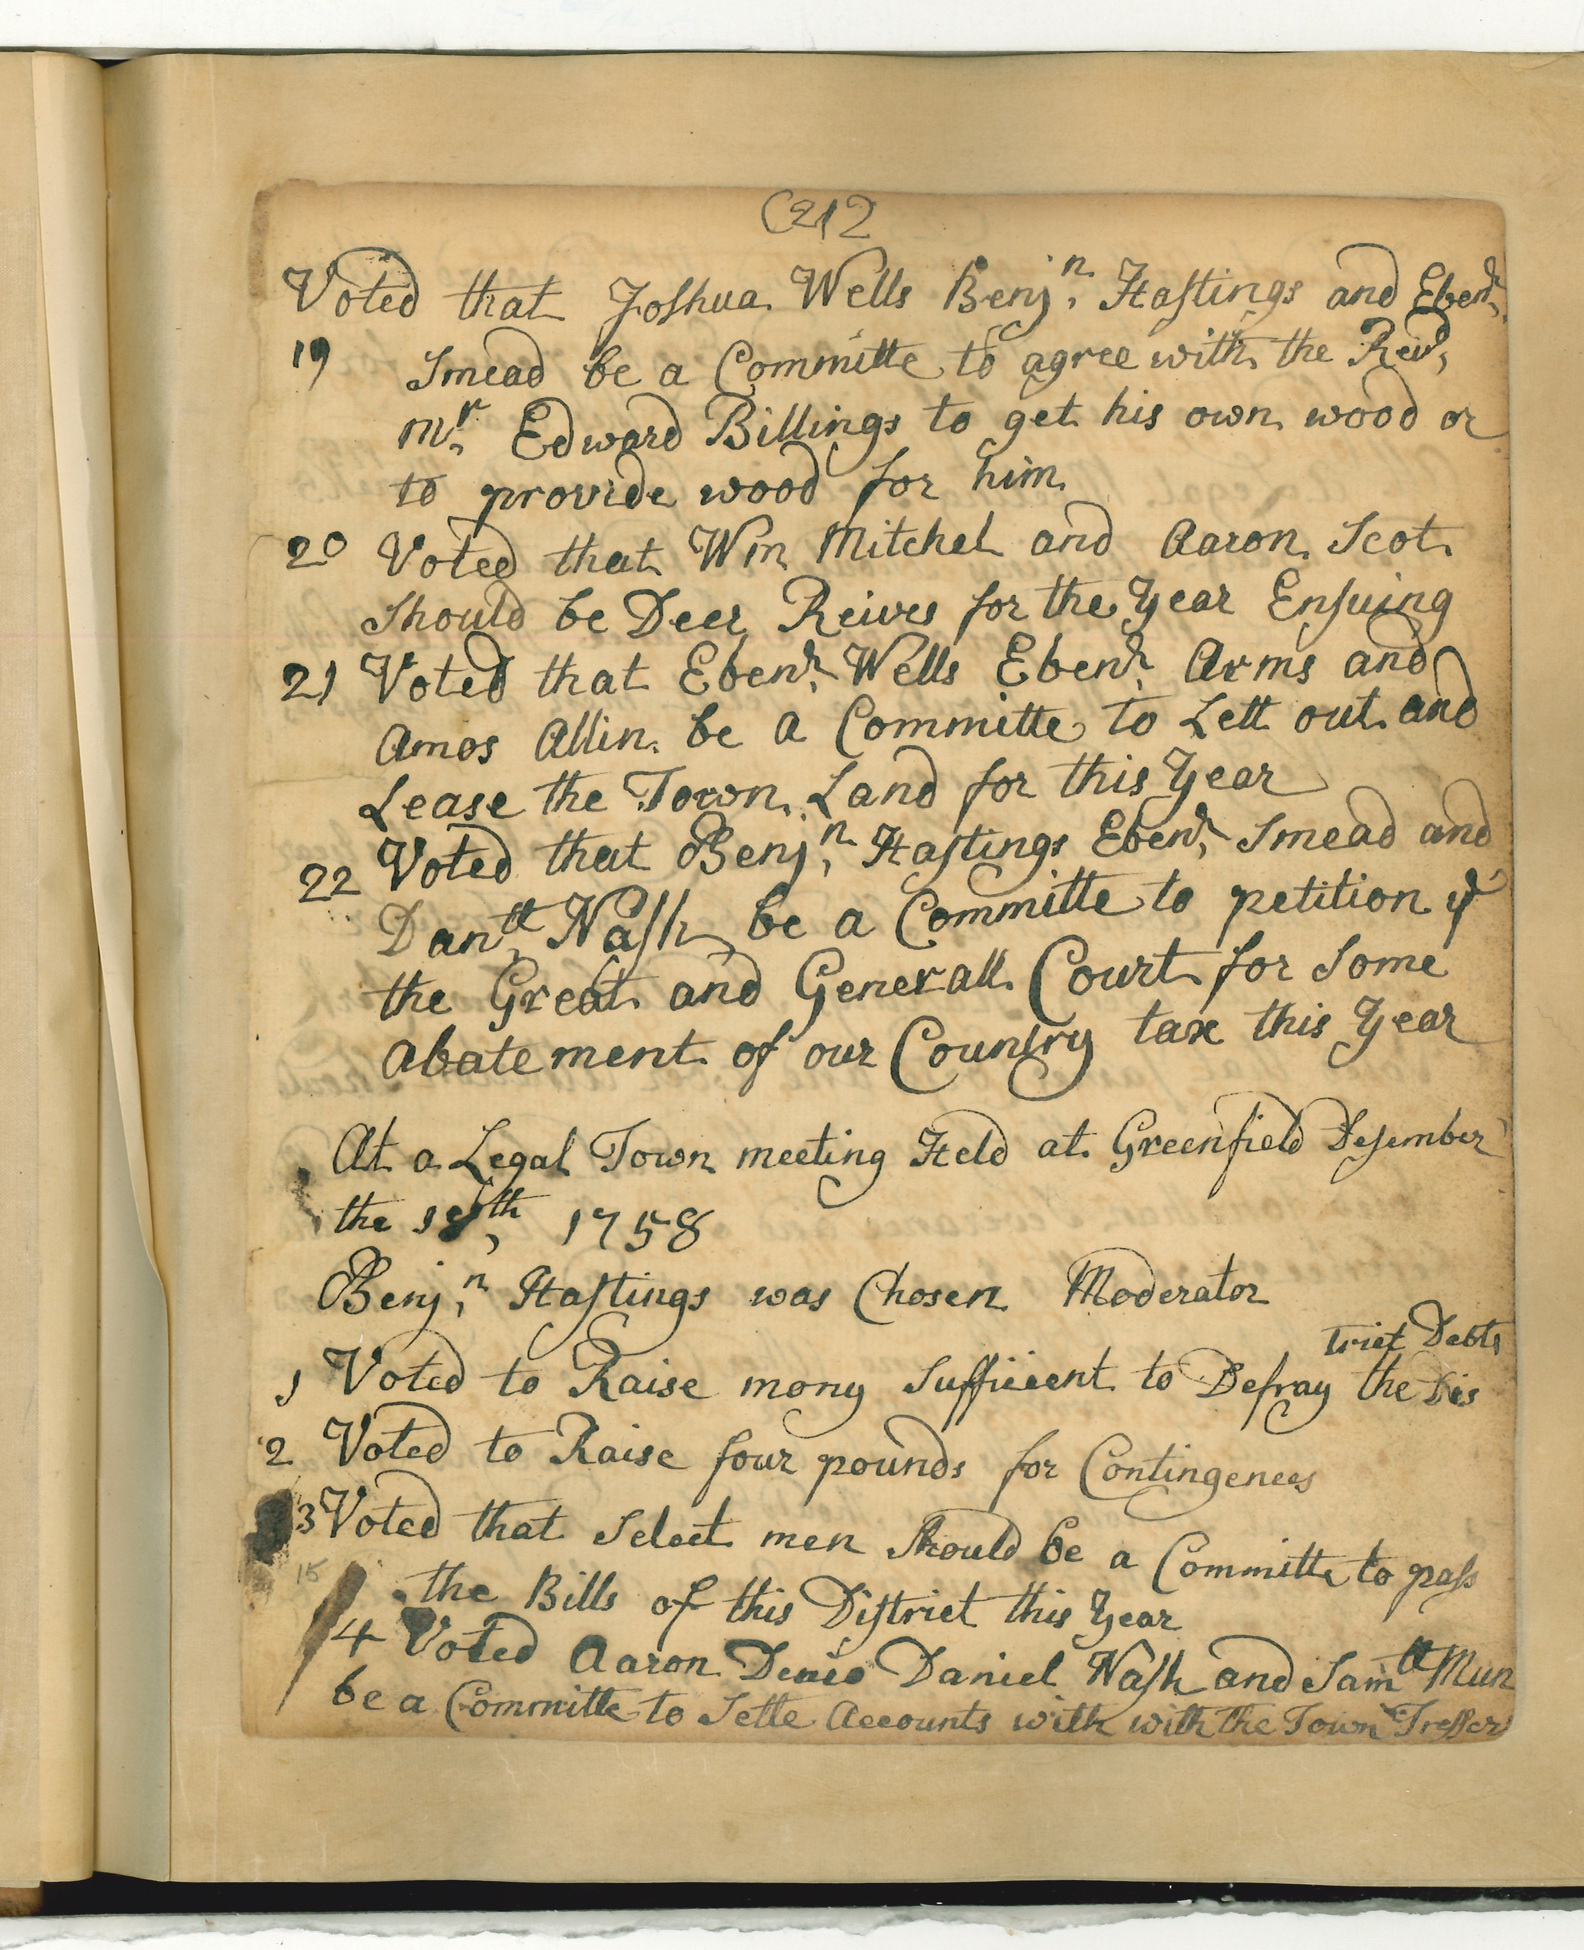 (212
Voted that Joshua Wells Benjn. Hastings and Ebenr.
19 Smead be a Committe to agree with the Revd,
Mr. Edward Billings to get his own wood or
to provide wood for him
20 Voted that Wm Mitchel and Aaron Scot
Should be Deer Reives for the Year Ensuing
21 Voted that Ebenr. Wells Ebenr. Arms and
Amos Allin be a Committe to Lett out and
Lease the Town Land for this Year
22 Voted that Benjn, Hastings Ebenr, Smead and
Danll, Nash be a Committe to petition ye
the Great and Generall Court for Some
abatement of our Country tax this Year
At a Legal Town meeting Held at Greenfield Desember
the 18th, 1758
Benj,n Hastings was Chosen Moderator
trict Debts
1 Voted to Raise mony Sufficient to Defray the Dis
2 Voted to Raise four pounds for Contingences
3 Voted that Select men Should be a Committe to pass
15
the Bills of this District this Year
4 Voted Aaron Denio Daniel Nash and Samll Mun
be a Committe to Settle Accounts with with the Town Tresser